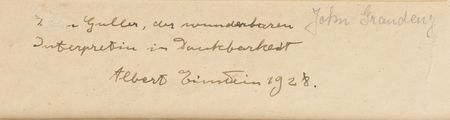 Guller, der wunderbaren John Grandeny
Interpretin in Dankbarkeit
Albert Einstein 1928.